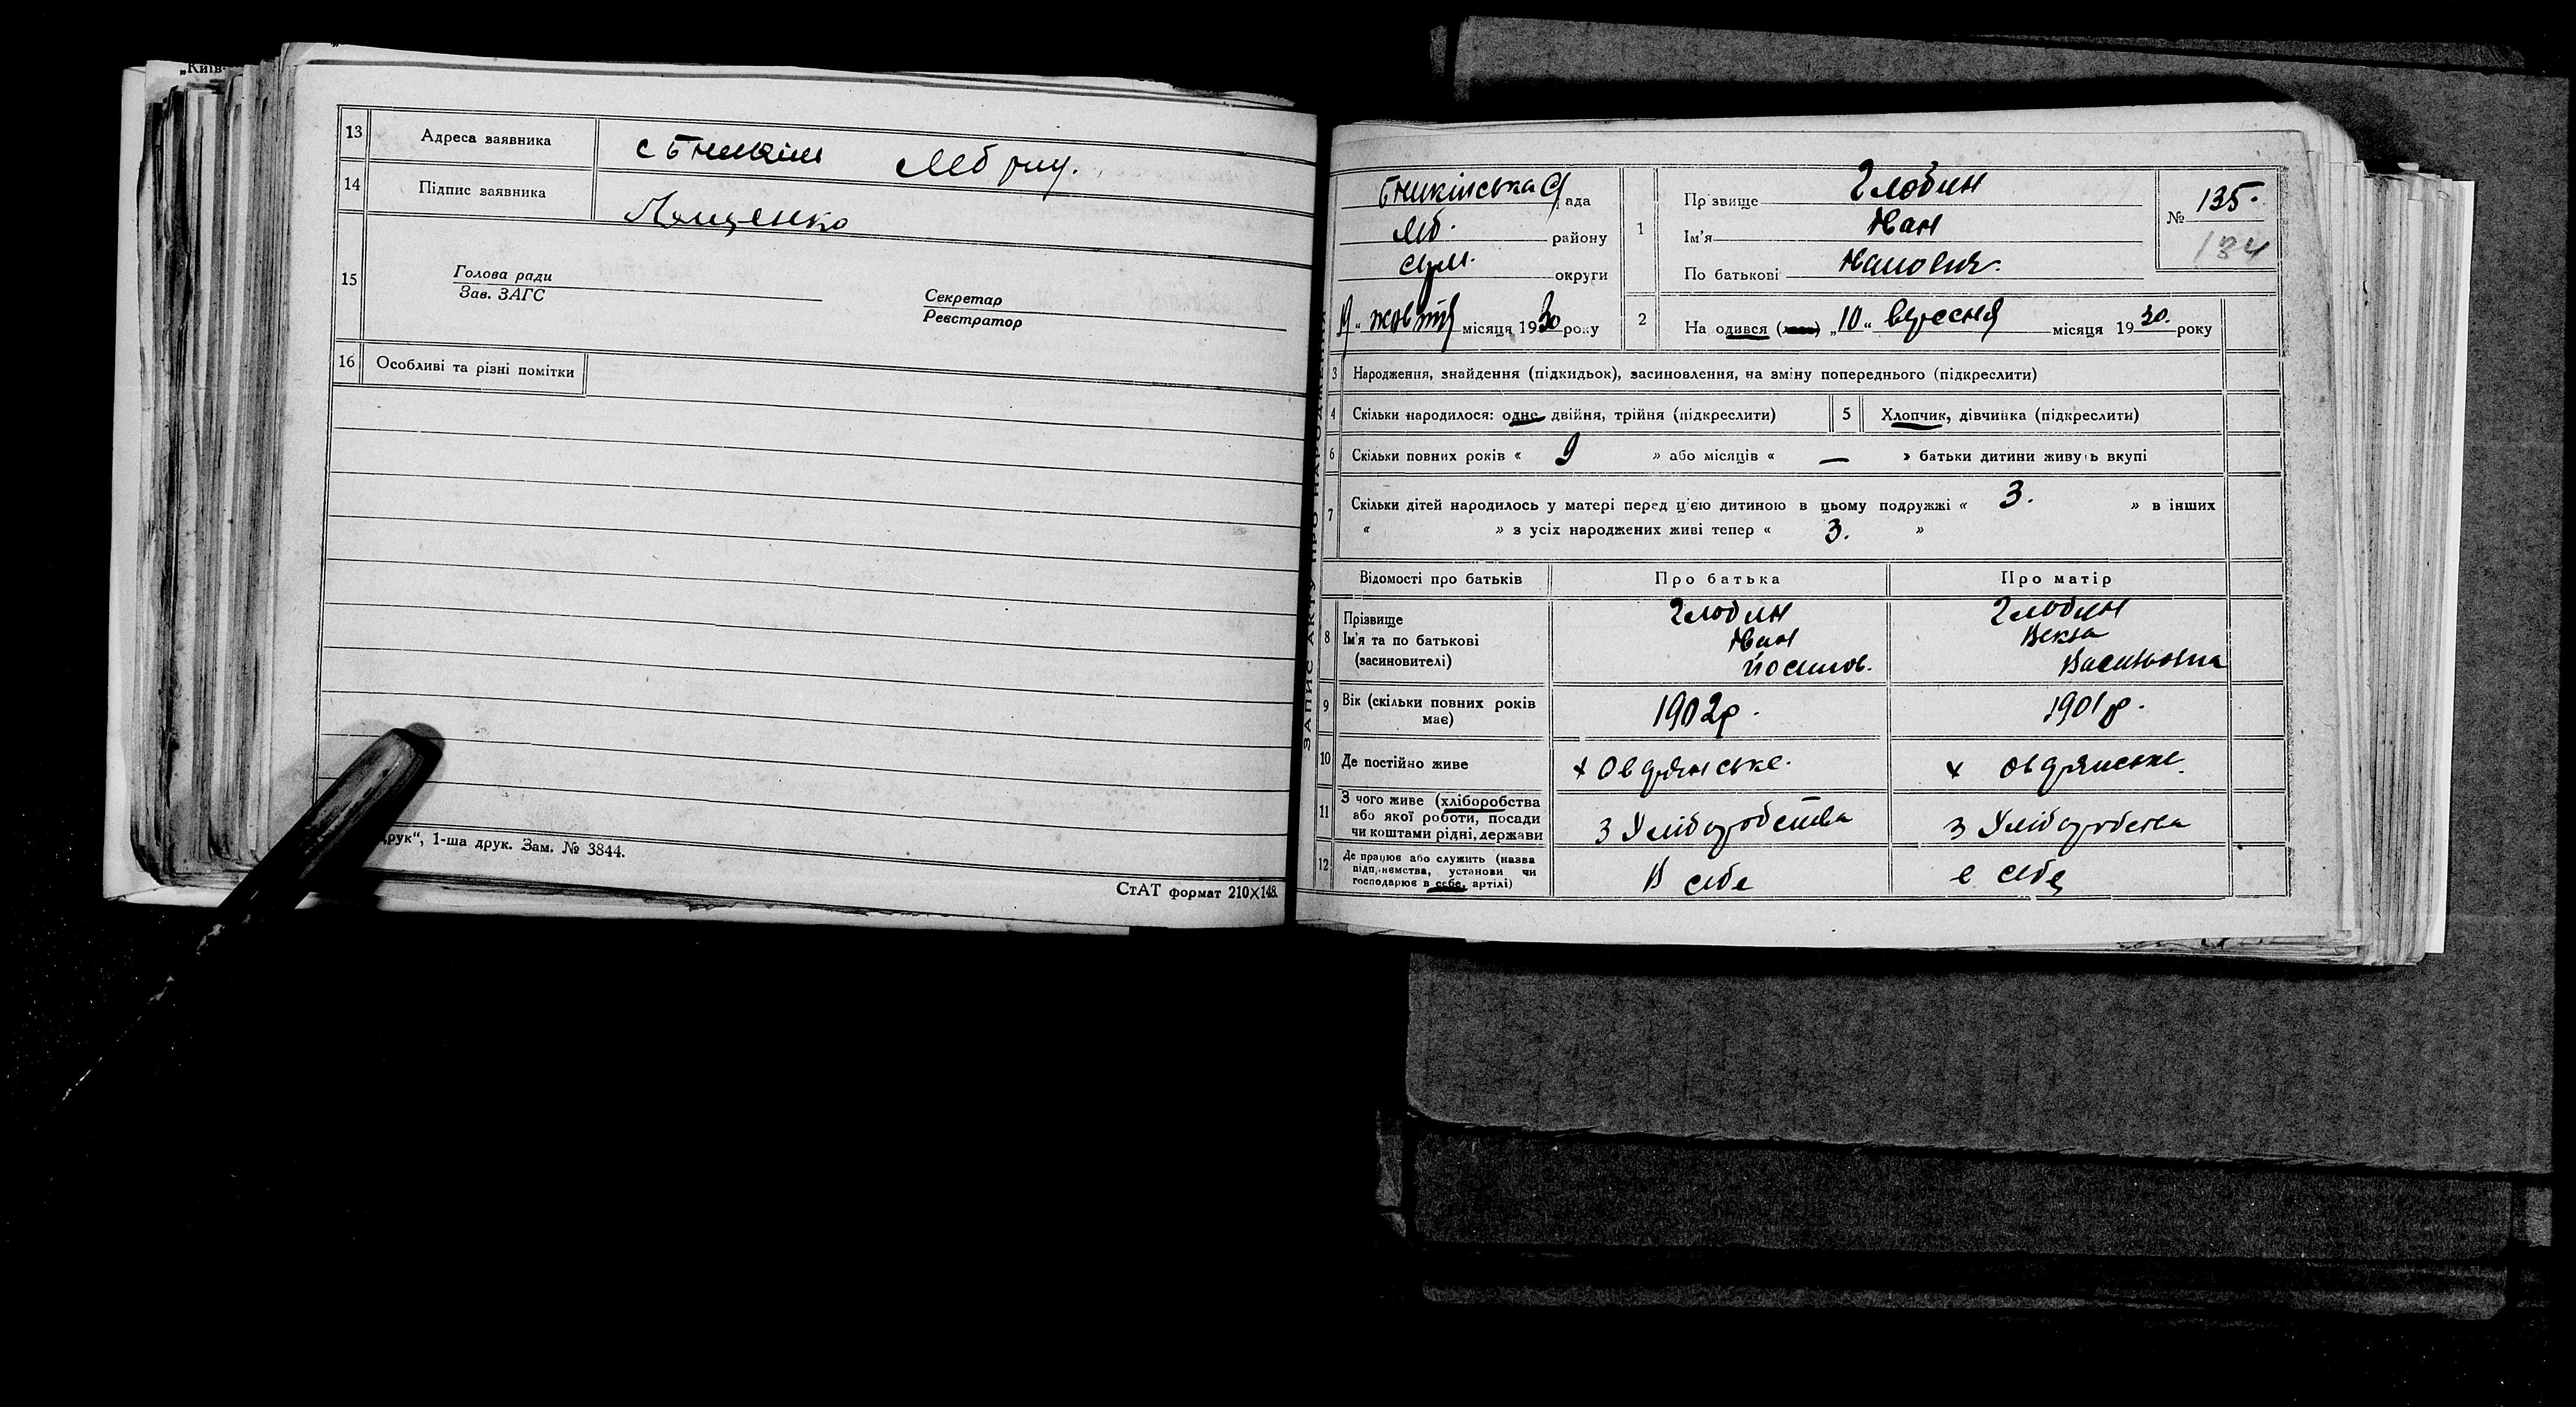 „Київ-
13 Адреса заявника с Бишкінь Леб рну.
14 Підпис заявника Лященко
15 Голова ради
Зав. ЗАГС
Секретар
Реєстратор
16 Особливі та різні помітки
друк“, 1-ша друк. Зам. № 3844.
СтАТ формат 210X148.
ЗАПИС АКТУ ПРО НАРОДЖЕННЯ
Бишкінська С ада
Леб. району
Сум. округи
19 „ жовтня місяця 1930 року
1 Пр звище Глобин
Ім'я Іван
По батькові Іванович.
№ 135.
134
2 На одився „10“ вересня місяця 1930. року
3 Народження, знайдення (підкидьок), засиновлення, на зміну попереднього (підкреслити)
4 Скільки народилося: одне двійня, трійня (підкреслити)
5 Хлопчик, дівчинка (підкреслити)
6 Скільки повних років « 9 » або місяців « — » батьки дитини живуть вкупі
7 Скільки дітей народилось у матері перед ц'єю дитиною в цьому подружжі « 3. » в інших
« » з усіх народжених живі тепер « 3. »
Відомості про батьків Про батька Про матір
8 Прізвище
Ім'я та по батькові
(засиновителі)
Глобин
Іван
Йосипов.
Глобин
Векла
Васильовна
9 Вік (скільки повних років має) 1902р. 1901р.
10 Де постійно живе х Овдрянське. х Овдрянське.
11 З чого живе (хліборобства
або якої роботи, посади
чи коштами рідні, держави
З Хліборобства З Хліборобства
12 Де працює або служить (назва
підприємства, установи чи
господарює в себе, артілі)
В себе в себе